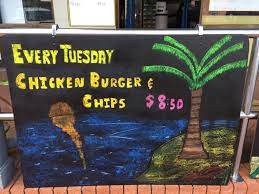 EVERY TUESDAY
CHICKEN BURGER &
CHIPS $8.50